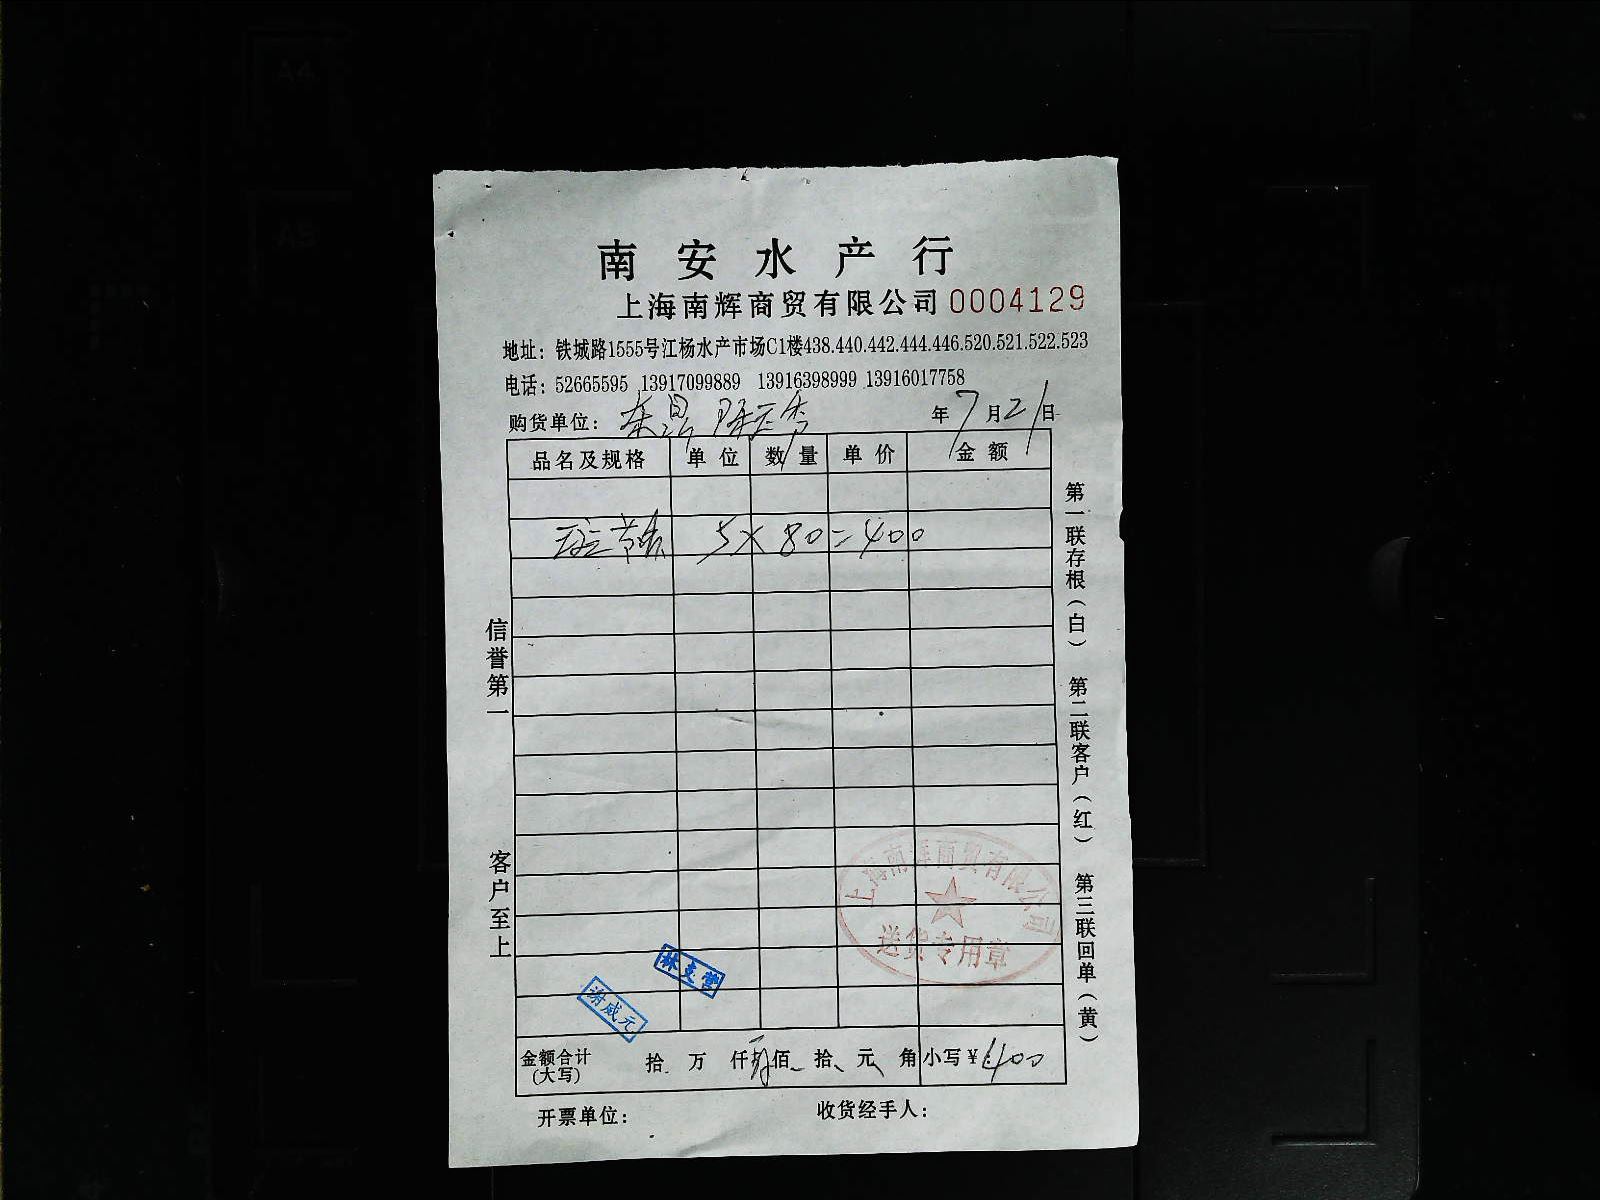 南安水产行
上海南辉商贸有限公司 0004129
地址：铁城路1555号江杨水产市场C1楼438.440.442.444.446.520.521.522.523
电话：52665595 13917099889 13916398999 13916017758
购货单位： 年7月21日
品名及规格 单位 数量 单价 金额
5×80=400
信誉第一
客户至上
第一联存根（白） 第二联客户（红） 第三联回单（黄）
上海南辉商贸有限公司
送货专用章
谢咸元
金额合计(大写) 拾 万 仟 佰 拾 元 角 小写¥：400
开票单位： 收货经手人：
A4
A5